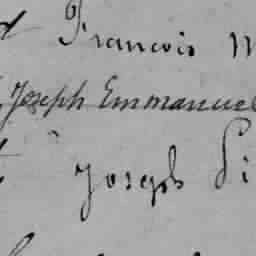 Francois
Joseph Emmanuel
Joseph